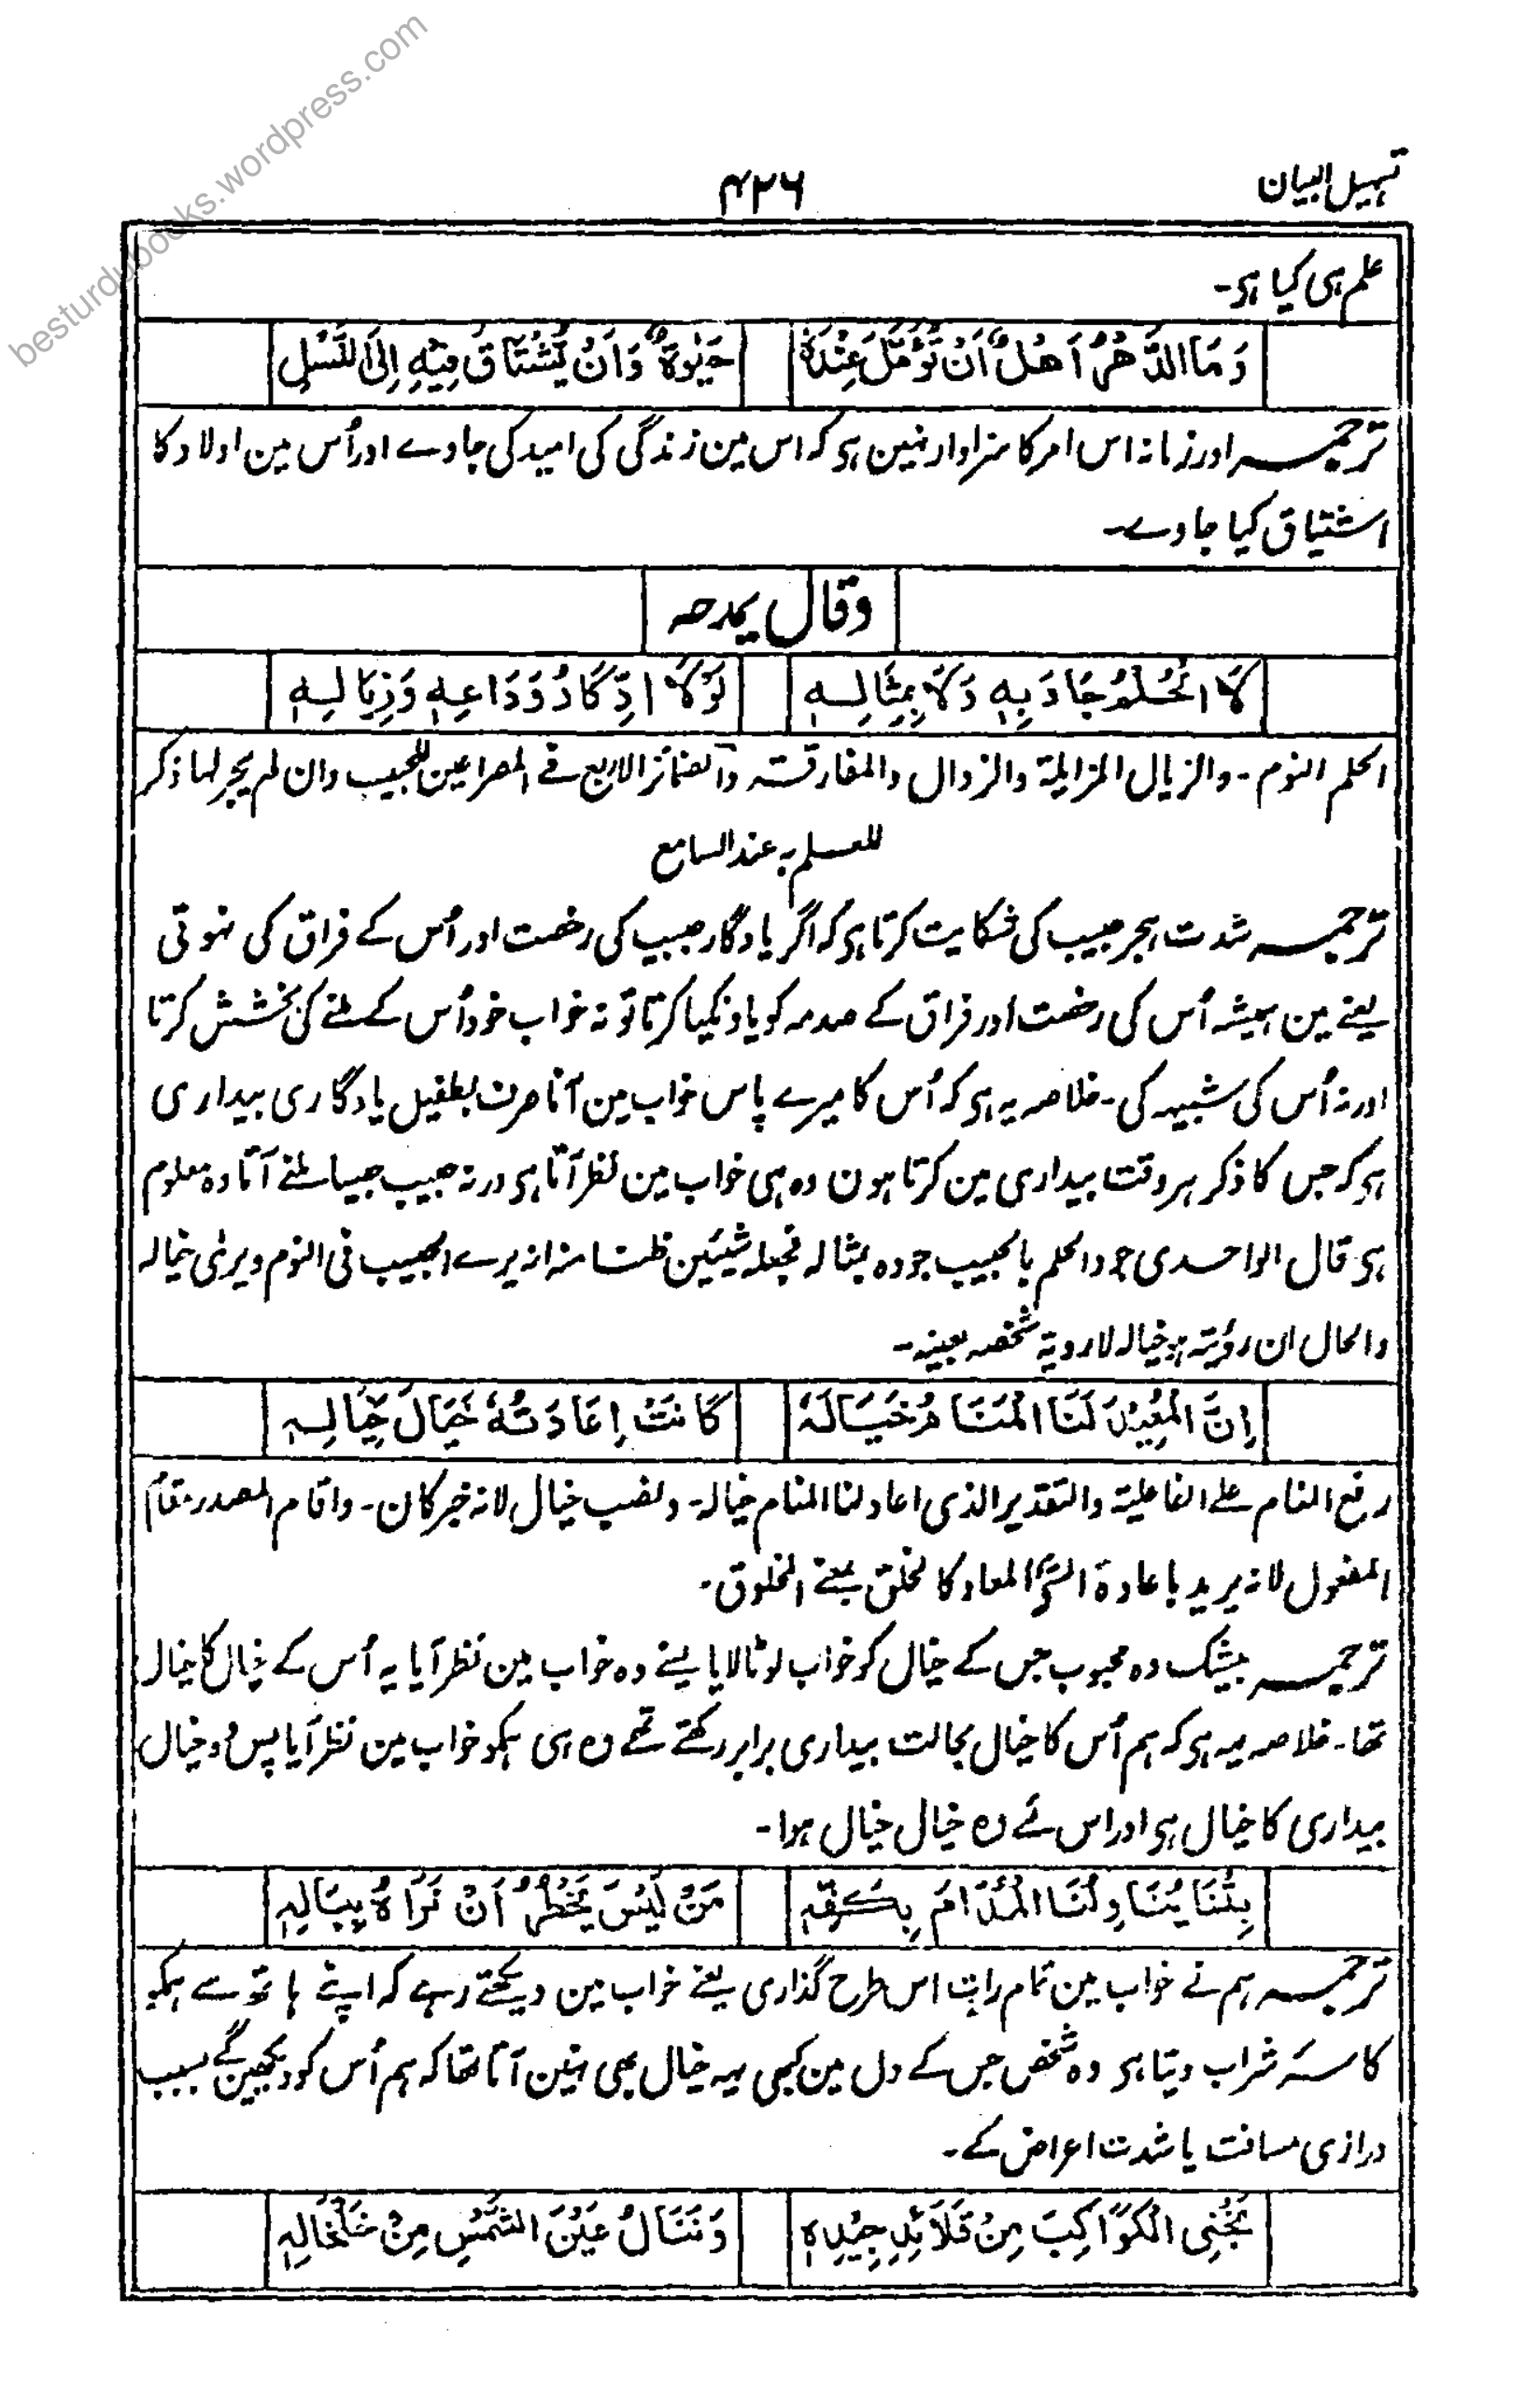 besturdubooks.wordpress.com
تسہیل البیان
۴۲۶
علم ہی کیا ہو۔
وَمَا الدَّهْرُ اَهْلٌ اَنْ تُؤَمَّلَ عِنْدَهٗ حَيٰوةٌ وَاَنْ يُّشْتَاقَ فِيْهِ اِلَى النَّسْلِ
ترجمہ اور زمانہ اس امر کا سزاوار نہین ہو کہ اس مین زندگی کی امید کی جاوے اور اُس مین اولاد کا
اشتیاق کیا جاوے۔
وقال یمدحہ
لَا الْحُلْمُ جَادَ بِهٖ وَلَا بِمِثَالِهٖ لَوْلَا ادِّكَارُ وَدَاعِهٖ وَزِيَالِهٖ
الحلم النوم۔ والزیال المزایلة والزوال والمفارقتہ والضمائر الاربع فی المصراعین للحبیب وان لم یجر لہا ذکر
للعلم بہ عند السامع
ترجمہ شدت ہجر حبیب کی شکایت کرتا ہو کہ اگر یادگار حبیب کی رخصت اور اُس کے فراق کی نہوتی
یعنے مین ہمیشہ اُس کی رخصت اور فراق کے صدمہ کو یاد نکیا کرتا تو نہ خواب خود اُس کے ملنے کی بخشش کرتا
اور نہ اُس کی شبیہہ کی۔ خلاصہ یہ ہو کہ اُس کا میرے پاس خواب مین آنا صرف بطفیل یادگاری بیداری
ہو کہ جس کا ذکر ہر وقت بیداری مین کرتا ہون وہ ہی خواب مین نظر آتا ہو ورنہ حبیب جیسا ملنے آتا وہ معلوم
ہو قال الواحدی جود الحلم بالحبیب جودہ بمثالہ فجعلہ شیئین ظنا منہ انہ یرے الحبیب فی النوم ویرٰی خیالہ
والحال ان رؤیتہ خیالہ لا رویة شخصہ بعینہ۔
اِنَّ الْمُعِيْدَ لَنَا الْمَنَامُ خَيَالَهٗ كَانَتْ اِعَادَتُهٗ خَيَالَ خَيَالِهٖ
رفع المنام علے الفاعلیۃ والتقدیر الذی اعاد لنا المنام خیالہ۔ ونصب خیال لانہ خبر کان۔ واقام المصدر مقام
المفعول لانہ یرید باعادة الشئ المعاد کالخلق بمعنے المخلوق۔
ترجمہ بیشک وہ محبوب جس کے خیال کو خواب لوٹا لایا یعنے وہ خواب مین نظر آیا یہ اُس کے خیال کا خیال
تھا۔ خلاصہ یہ ہو کہ ہم اُس کا خیال بحالت بیداری برابر رکھتے تھے وہ ہی ہمکو خواب مین نظر آیا پس وہ خیال
بیداری کا خیال ہو اور اس لئے وہ خیال خیال ہوا۔
بِتْنَا يُنَاوِلُنَا الْمُدَامَ بِكَفِّهٖ مَنْ لَيْسَ يَخْطُرُ اَنْ نَرَاهُ بِبَالِهٖ
ترجمہ ہم نے خواب مین تمام رات اس طرح گذاری یعنے خواب مین دیکھتے رہے کہ اپنے ہاتھ سے ہمکو
کاسہ شراب دیتا ہو وہ شخص جس کے دل مین کبھی یہ خیال بھی نہین آتا تھا کہ ہم اُس کو دیکھین گے بسبب
درازی مسافت یا شدت اعراض کے۔
نَجْنِی الْكَوَاكِبَ مِنْ قَلَائِدِ جِيْدِهٖ وَنَنَالُ عَيْنَ الشَّمْسِ مِنْ خَلْخَالِهٖ